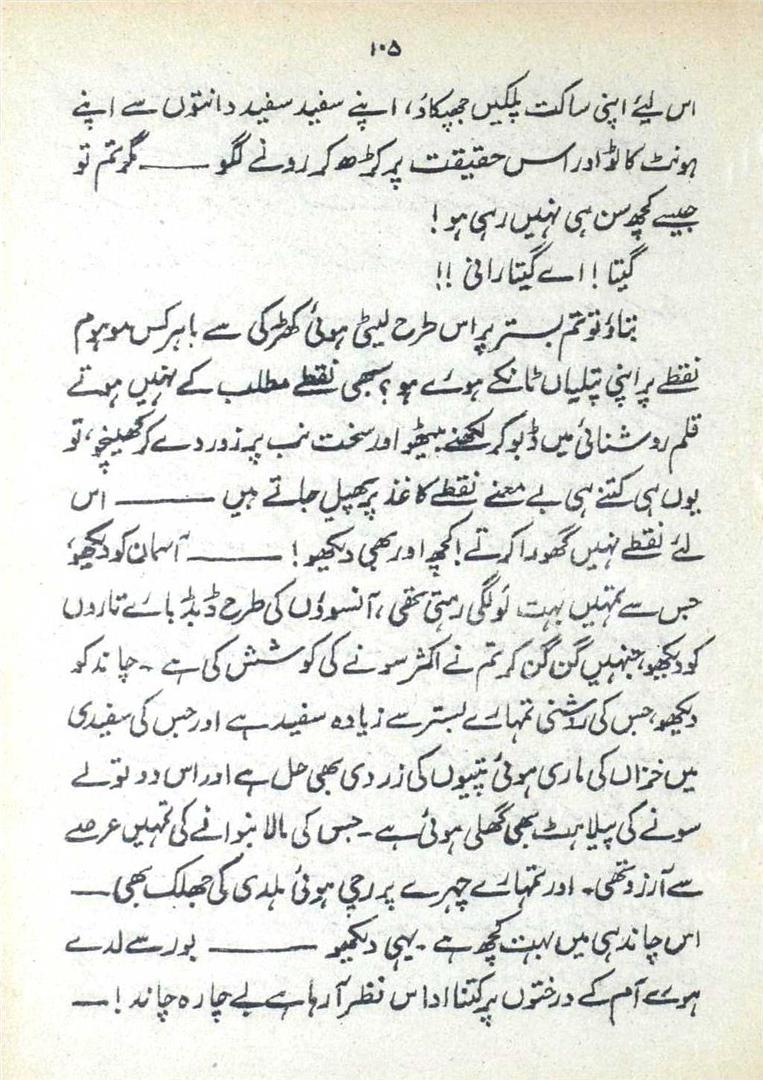 ۱۰۵
اس لیئے اپنی ساکت پلکیں جھپکاؤ، اپنے سفید سفید دانتوں سے اپنے
ہونٹ کاٹو اور اس حقیقت پر کڑھ کر رونے لگو ــــــ مگر تم تو
جیسے کچھ سن ہی نہیں رہی ہو!
گیتا! اے گیتا رانی!!
بتاؤ تو تم بستر پر اس طرح لیٹی ہوئی کھڑکی سے باہر کس موہوم
نقطے پر اپنی پتلیاں ٹانکے ہوئے ہو؟ سبھی نقطے مطلب کے نہیں ہوتے
قلم روشنائی میں ڈبو کر لکھنے بیٹھو اور سخت نب پر زور دے کر کھینچو، تو
یوں ہی کتنے ہی بے معنے نقطے کاغذ پر پھیل جاتے ہیں ــــــ اس
لئے نقطے نہیں گھورا کرتے! کچھ اور بھی دیکھو! ــــــ آسمان کو دیکھو،
جس سے تمہیں بہت لَو لگی رہتی تھی، آنسوؤں کی طرح ڈبڈبائے تاروں
کو دیکھو، جنہیں گن گن کر تم نے اکثر سونے کی کوشش کی ہے ۔ چاند کو
دیکھو، جس کی روشنی تمہارے بستر سے زیادہ سفید ہے اور جس کی سفیدی
میں خزاں کی ماری ہوئی پتیوں کی زردی بھی حل ہے اور اس دو تولے
سونے کی پیلاہٹ بھی گھلی ہوئی ہے ۔ جس کی مالا بنوانے کی تمہیں عرصے
سے آرزو تھی۔ اور تمہارے چہرے پر رچی ہوئی ہلدی کی جھلک بھی ــــ
اس چاند ہی میں بہت کچھ ہے ۔ یہی دیکھو ــــــ بور سے لدے
ہوئے آم کے درختوں پر کتنا اداس نظر آرہا ہے بے چارہ چاند! ــــ